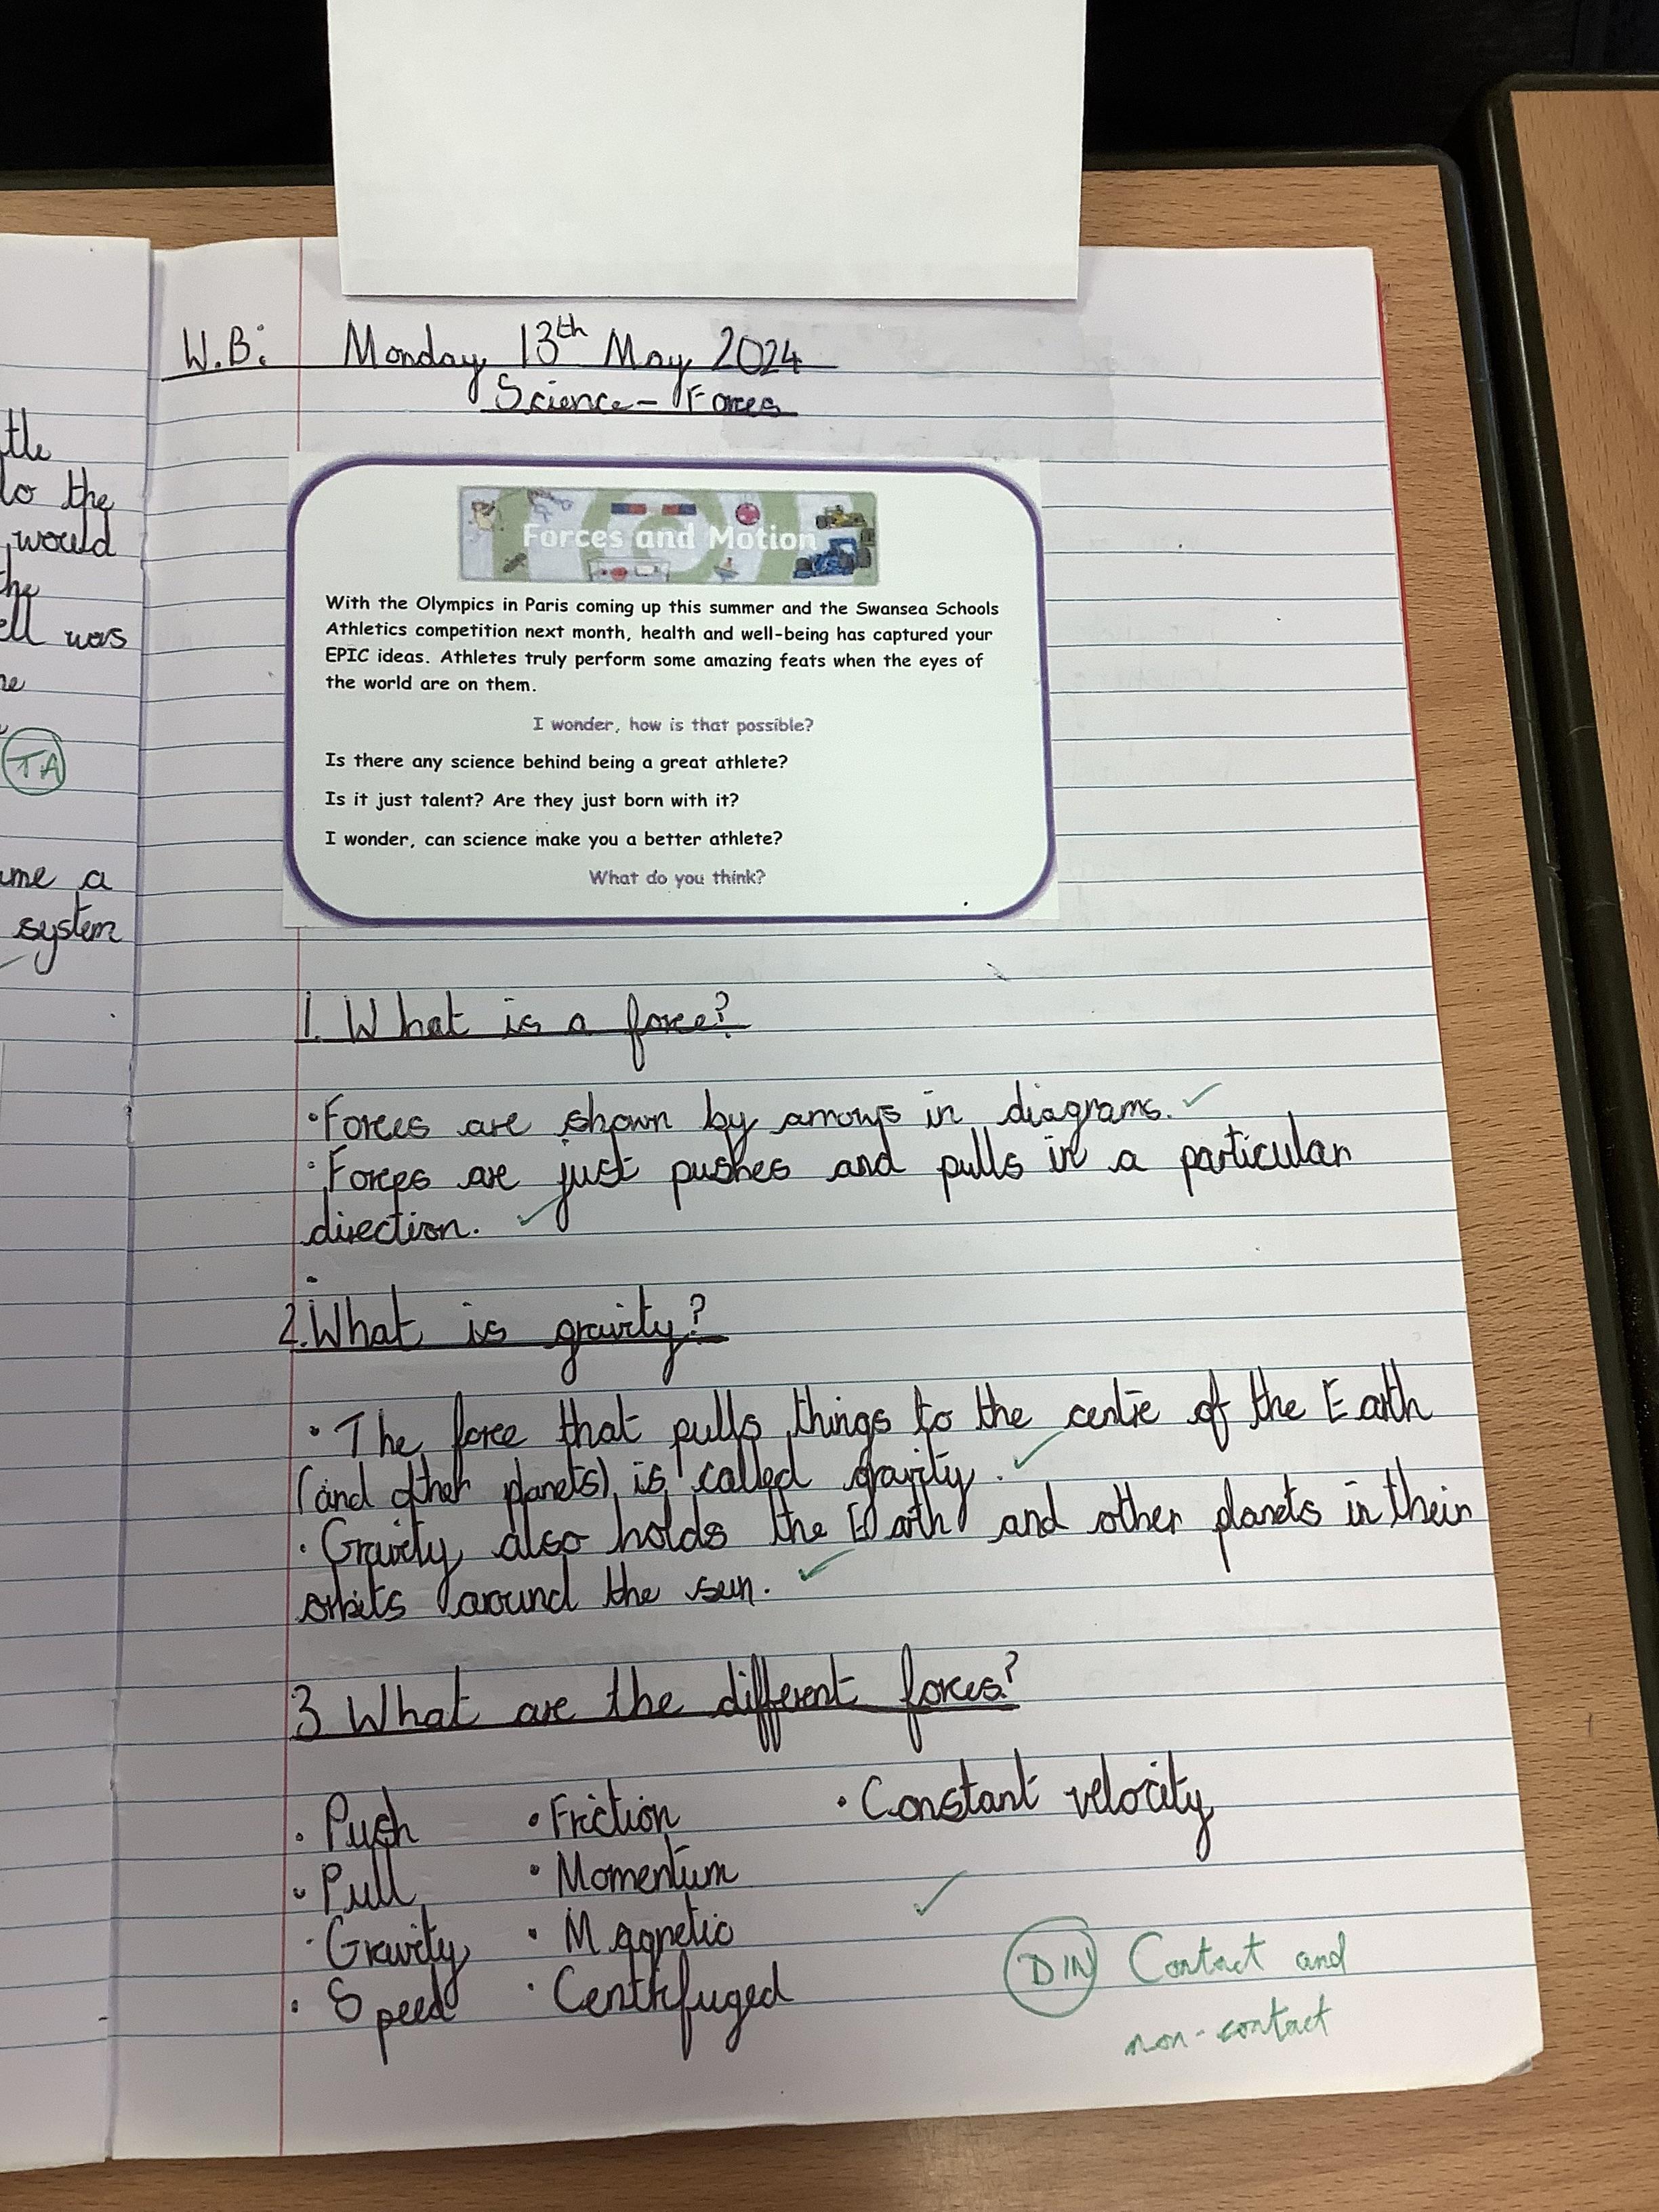 W.B: Monday 13th May 2024
Science - Forces
Forces and Motion
With the Olympics in Paris coming up this summer and the Swansea Schools
Athletics competition next month, health and well-being has captured your
EPIC ideas. Athletes truly perform some amazing feats when the eyes of
the world are on them.
I wonder, how is that possible?
Is there any science behind being a great athlete?
Is it just talent? Are they just born with it?
I wonder, can science make you a better athlete?
What do you think?
1. What is a force?
• Forces are shown by arrows in diagrams.
• Forces are just pushes and pulls in a particular
direction.
2. What is gravity?
• The force that pulls things to the centre of the Earth
(and other planets) is called gravity.
• Gravity also holds the Earth and other planets in their
orbits around the sun.
3. What are the different forces?
• Push • Friction • Constant velocity
• Pull • Momentum
• Gravity • Magnetic
• Speed • Centrifuged
DIN Contact and
non-contact
lo the
would
was
TA
me a
system